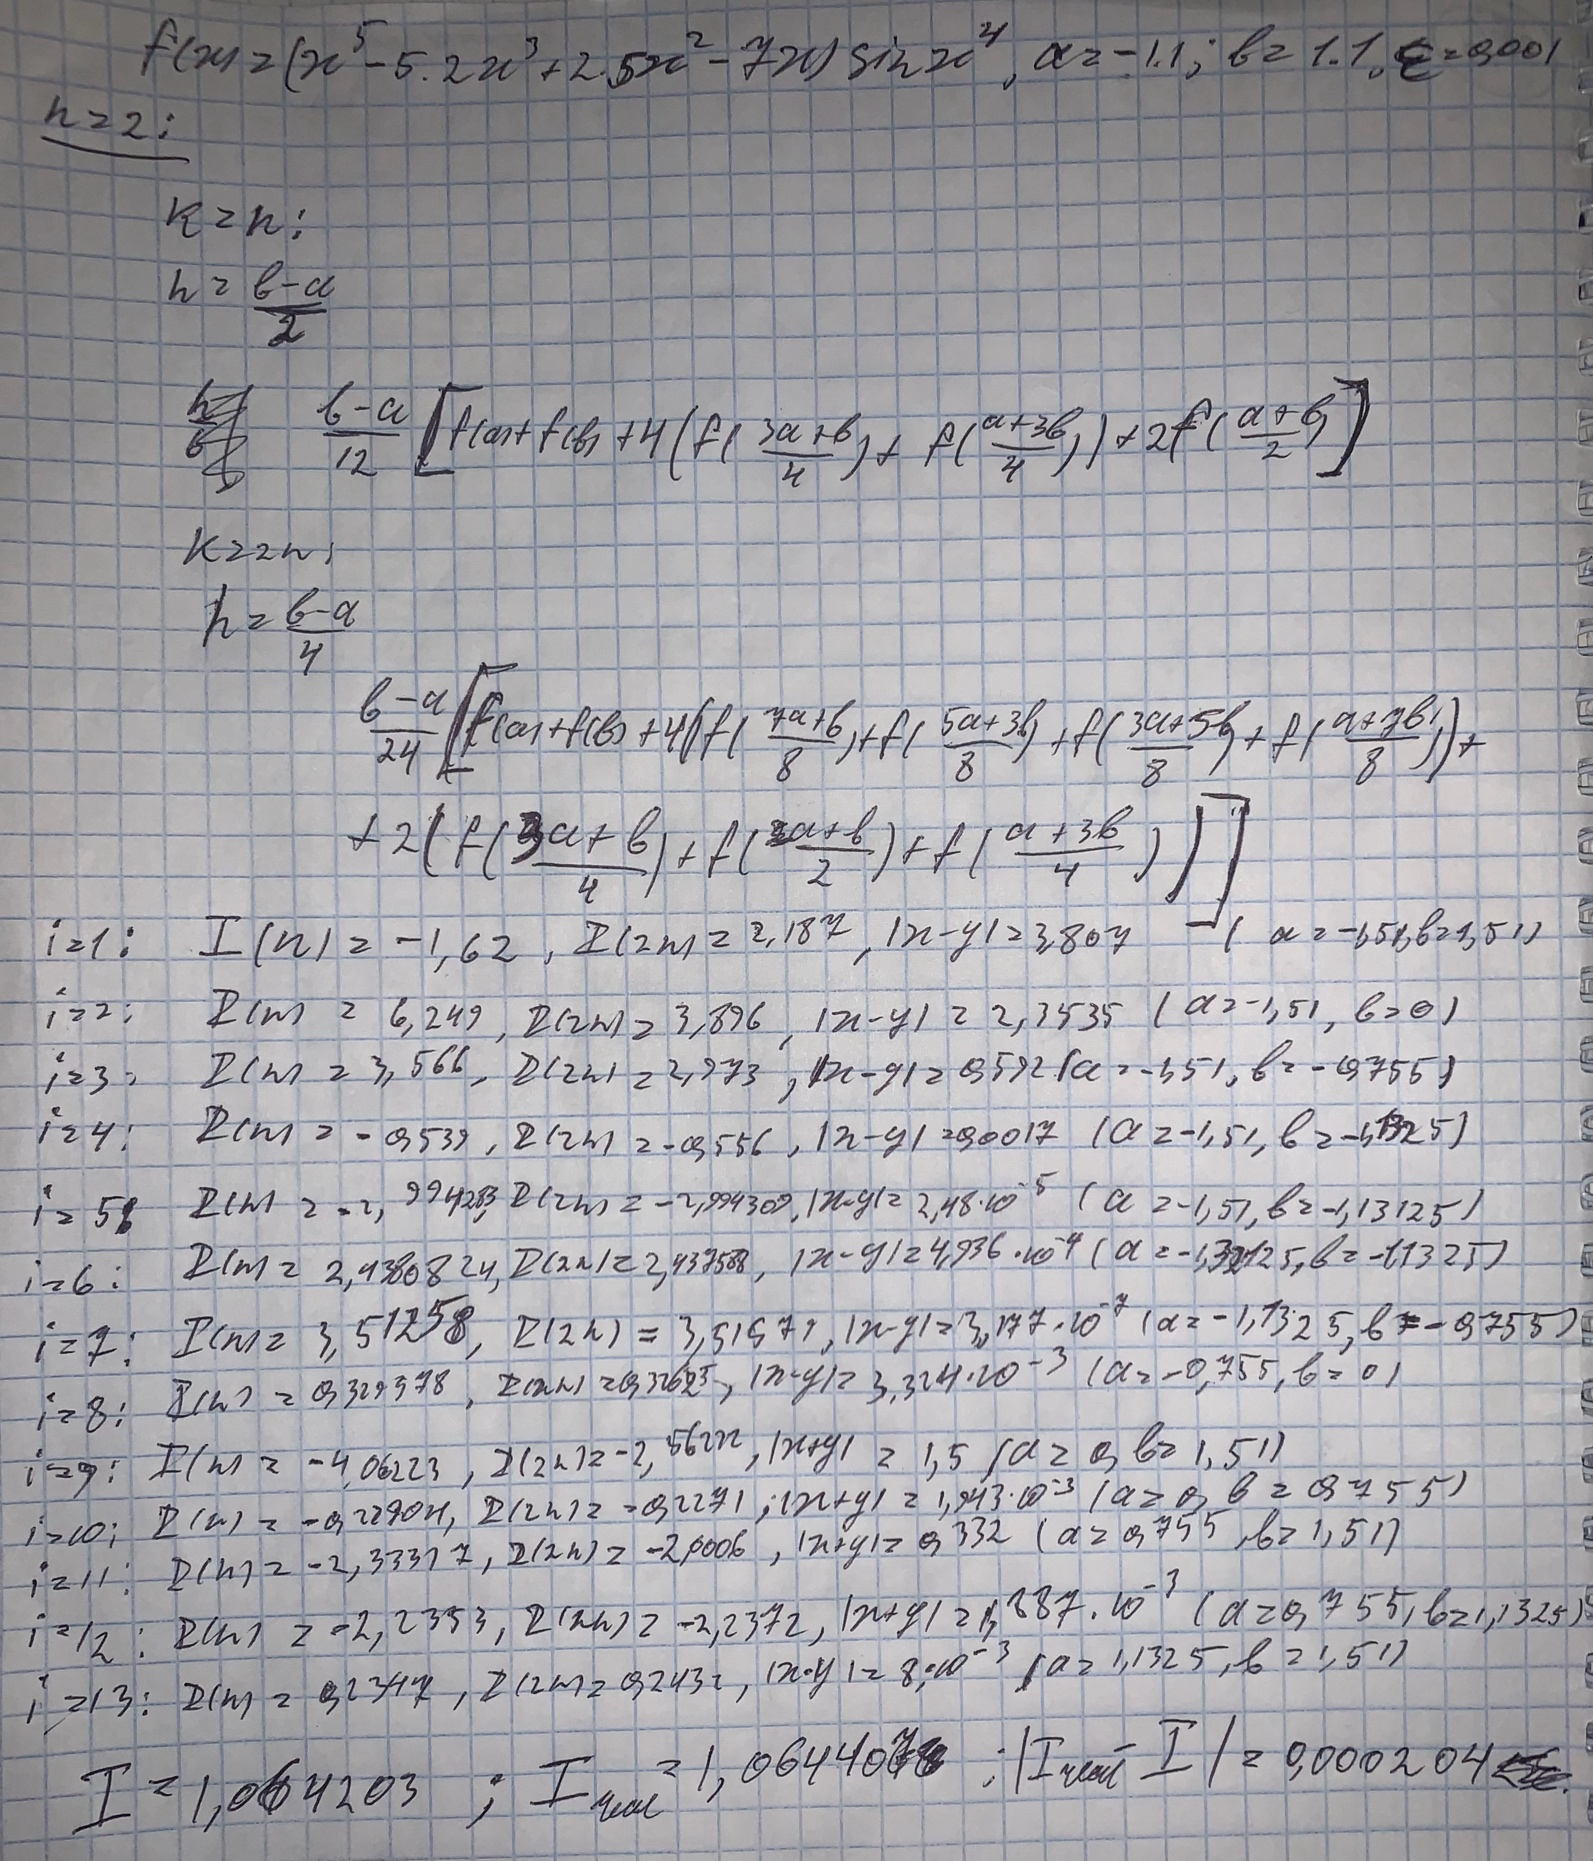 f(x) = (x⁵ - 5.2x³ + 2.5x² - 7x) sin x⁴, a = -1.1; b = 1.1, ε = 0,001
n = 2:
k = n:
h = (b-a)/2
(b-a)/12 [f(a) + f(b) + 4(f((3a+b)/4) + f((a+3b)/4)) + 2f((a+b)/2)]
k = 2n:
h = (b-a)/4
(b-a)/24 [f(a) + f(b) + 4(f((7a+b)/8) + f((5a+3b)/8) + f((3a+5b)/8) + f((a+7b)/8)) +
+ 2(f((3a+b)/4) + f((a+b)/2) + f((a+3b)/4))]
i=1: I(n) = -1,62, I(2n) = 2,187, |x-y| = 3,807 (a = -1,51, b = 1,51)
i=2: I(n) = 6,249, I(2n) = 3,896, |x-y| = 2,3535 (a = -1,51, b = 0)
i=3: I(n) = 3,566, I(2n) = 2,973, |x-y| = 0,592 (a = -1,51, b = -0,755)
i=4: I(n) = -0,539, I(2n) = -0,556, |x-y| = 0,0017 (a = -1,51, b = -1,1325)
i=5: I(n) = -2,994283, I(2n) = -2,994309, |x-y| = 2,48·10⁻⁵ (a = -1,51, b = -1,13125)
i=6: I(n) = 2,4380824, I(2n) = 2,437588, |x-y| = 4,936·10⁻⁴ (b = -1,1325)
i=7: I(n) = 3,51258, I(2n) = |x-y| = 3,177·10⁻⁷ (a = -1,1325, b = -0,755)
i=8: I(n) = 0,329978, I(2n) = |x-y| = 3,324·10⁻³ (a = -0,755, b = 0)
i=9: I(n) = -4,06223, I(2n) = |x+y| = 1,5 (a = 0, b = 1,51)
i=10: I(n) = I(2n) = -0,2271, |x+y| = 1,943·10⁻³ (a = 0, b = 0,755)
i=11: I(n) = -2,33317, I(2n) = -2,0006, |x+y| = 0,332 (a = 0,755, b = 1,51)
i=12: I(n) = -2,2353, I(2n) = -2,2372, |x+y| = 1,887·10⁻³ (a = 0,755, b = 1,1325)
i=13: I(n) = I(2n) = 0,2432, |x-y| = 8·10⁻³ (a = 1,1325, b = 1,51)
I = 1,064203 ; I real = |I real - I| = 0,000204